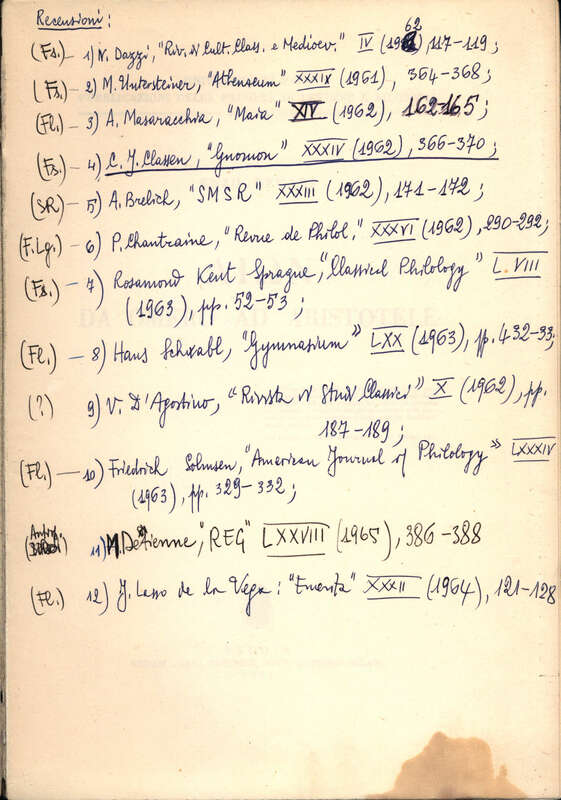 Recensioni:
(Fs.) – 1) N. Dazzi, "Riv. di Cult. Class. e Medioev." IV (1962), 117-119;
(Fs.) – 2) M. Untersteiner, "Athenaeum" XXXIX (1961), 364-368;
(Fl.) – 3) A. Masaracchia, "Maia" XIV (1962), 162-165;
(Fs.) – 4) C. J. Classen, "Gnomon" XXXIV (1962), 366-370;
(SR) – 5) A. Brelich, "SMSR" XXXIII (1962), 171-172;
(F.Lg.) – 6) P. Chantraine, "Revue de Philol." XXXVI (1962), 290-292;
(Fs.) – 7) Rosamond Kent Sprague, "Classical Philology" LVIII
(1963), pp. 52-53;
(Fl.) – 8) Hans Schwabl, "Gymnasium" LXX (1963), pp. 432-33;
(?) 9) V. D'Agostino, "Rivista di Studi Classici" X (1962), pp.
187-189;
(Fl.) – 10) Friedrich Solmsen, "American Journal of Philology" LXXXIV
(1963), pp. 329-332;
11) M. Detienne, "REG" LXXVIII (1965), 386-388
(Fl.) 12) J. Lasso de la Vega: "Emerita" XXXII (1964), 121-128
DA ARISTOTELE